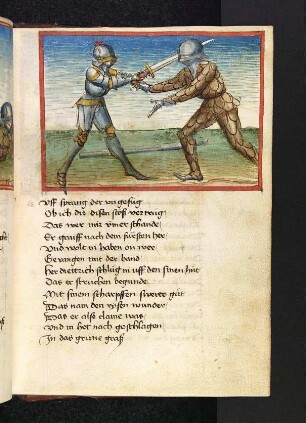 Uff sprang der ungefüg
Ob ich dir disen stoß vertrüg
Das wer mir ymer schande
Er graiff nach dem fürsten her
Und wolt in haben on wer
Gefangen mit der hand
her dietrich schlüg in uff den sinen hüt
Das er struchen begunde
Mit sinem scharpffen swerte güt
Das nam den rysen wunder
Das er also claine was
Und in het nach geschlagen
In das grüne graß